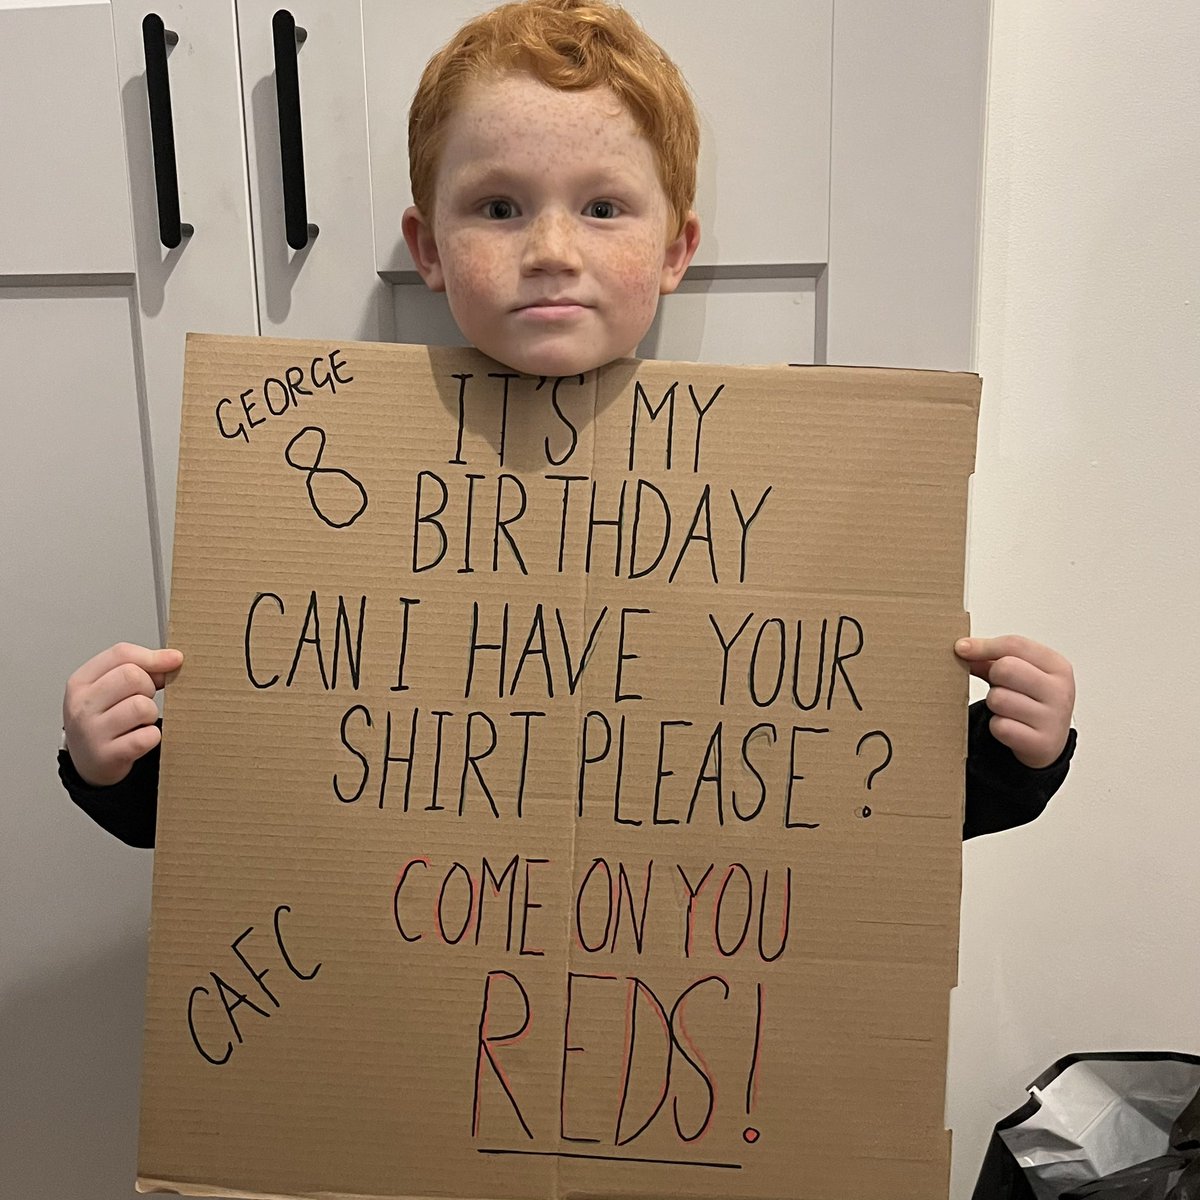 GEORGE
8
IT'S MY
BIRTHDAY
CAN I HAVE YOUR
SHIRT PLEASE?
COME ON YOU
REDS!
CAFC